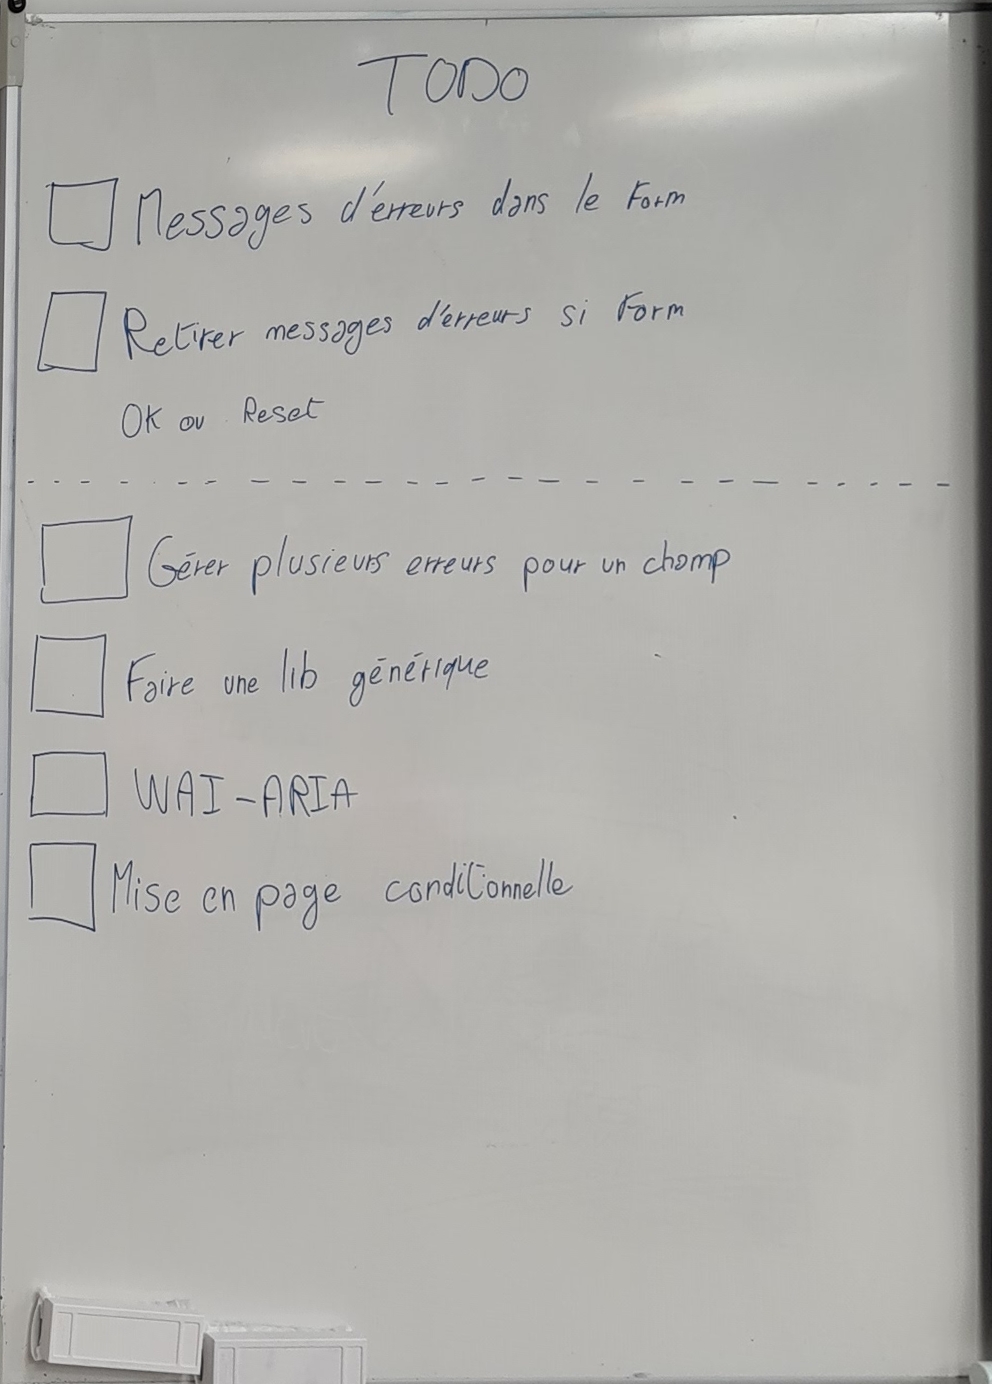 TODO
Messages d'érreurs dans le Form
Retirer messages d'érreurs si Form
OK ou Reset
Gérer plusieurs erreurs pour un champ
Faire une lib générique
WAI-ARIA
Mise en page conditionnelle